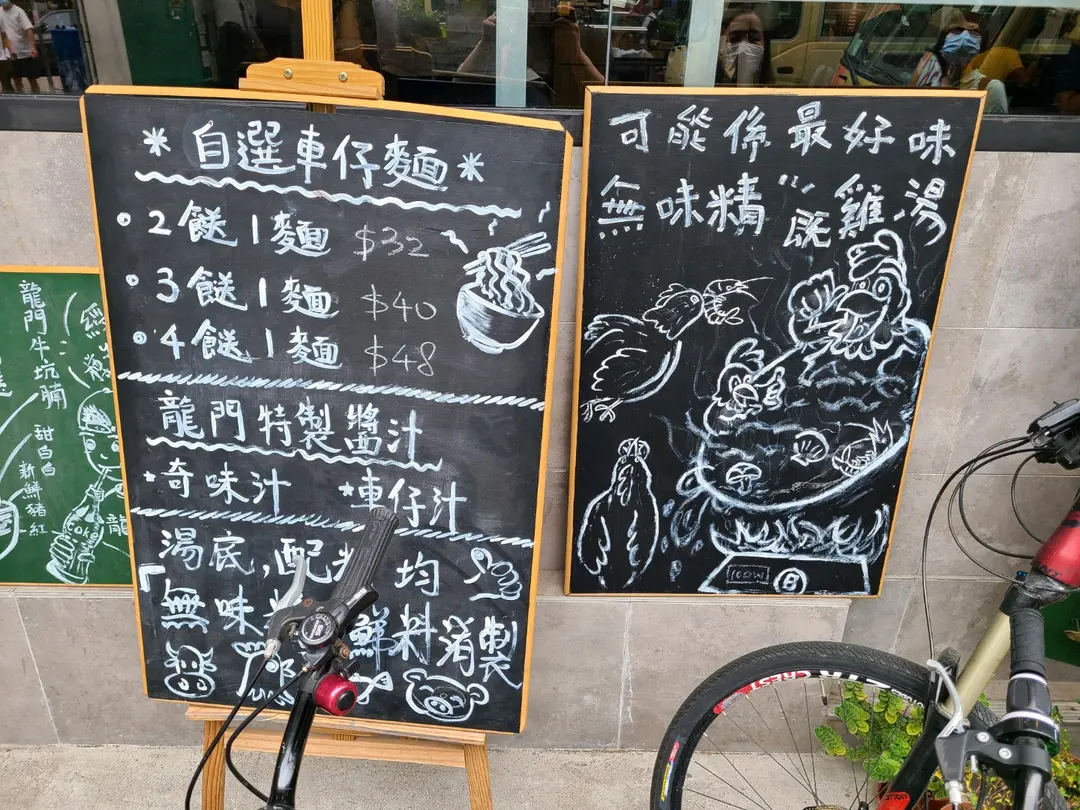 *自選車仔麵*
2餸1麵 $32
3餸1麵 $40
4餸1麵 $48
龍門特製醬汁
*奇味汁 *車仔汁
湯底,配料均
「無味 鮮料淆製
可能係最好味
無味精 既雞湯
100W
龍門牛坑腩
甜白白
新鮮豬紅
龍
CREST